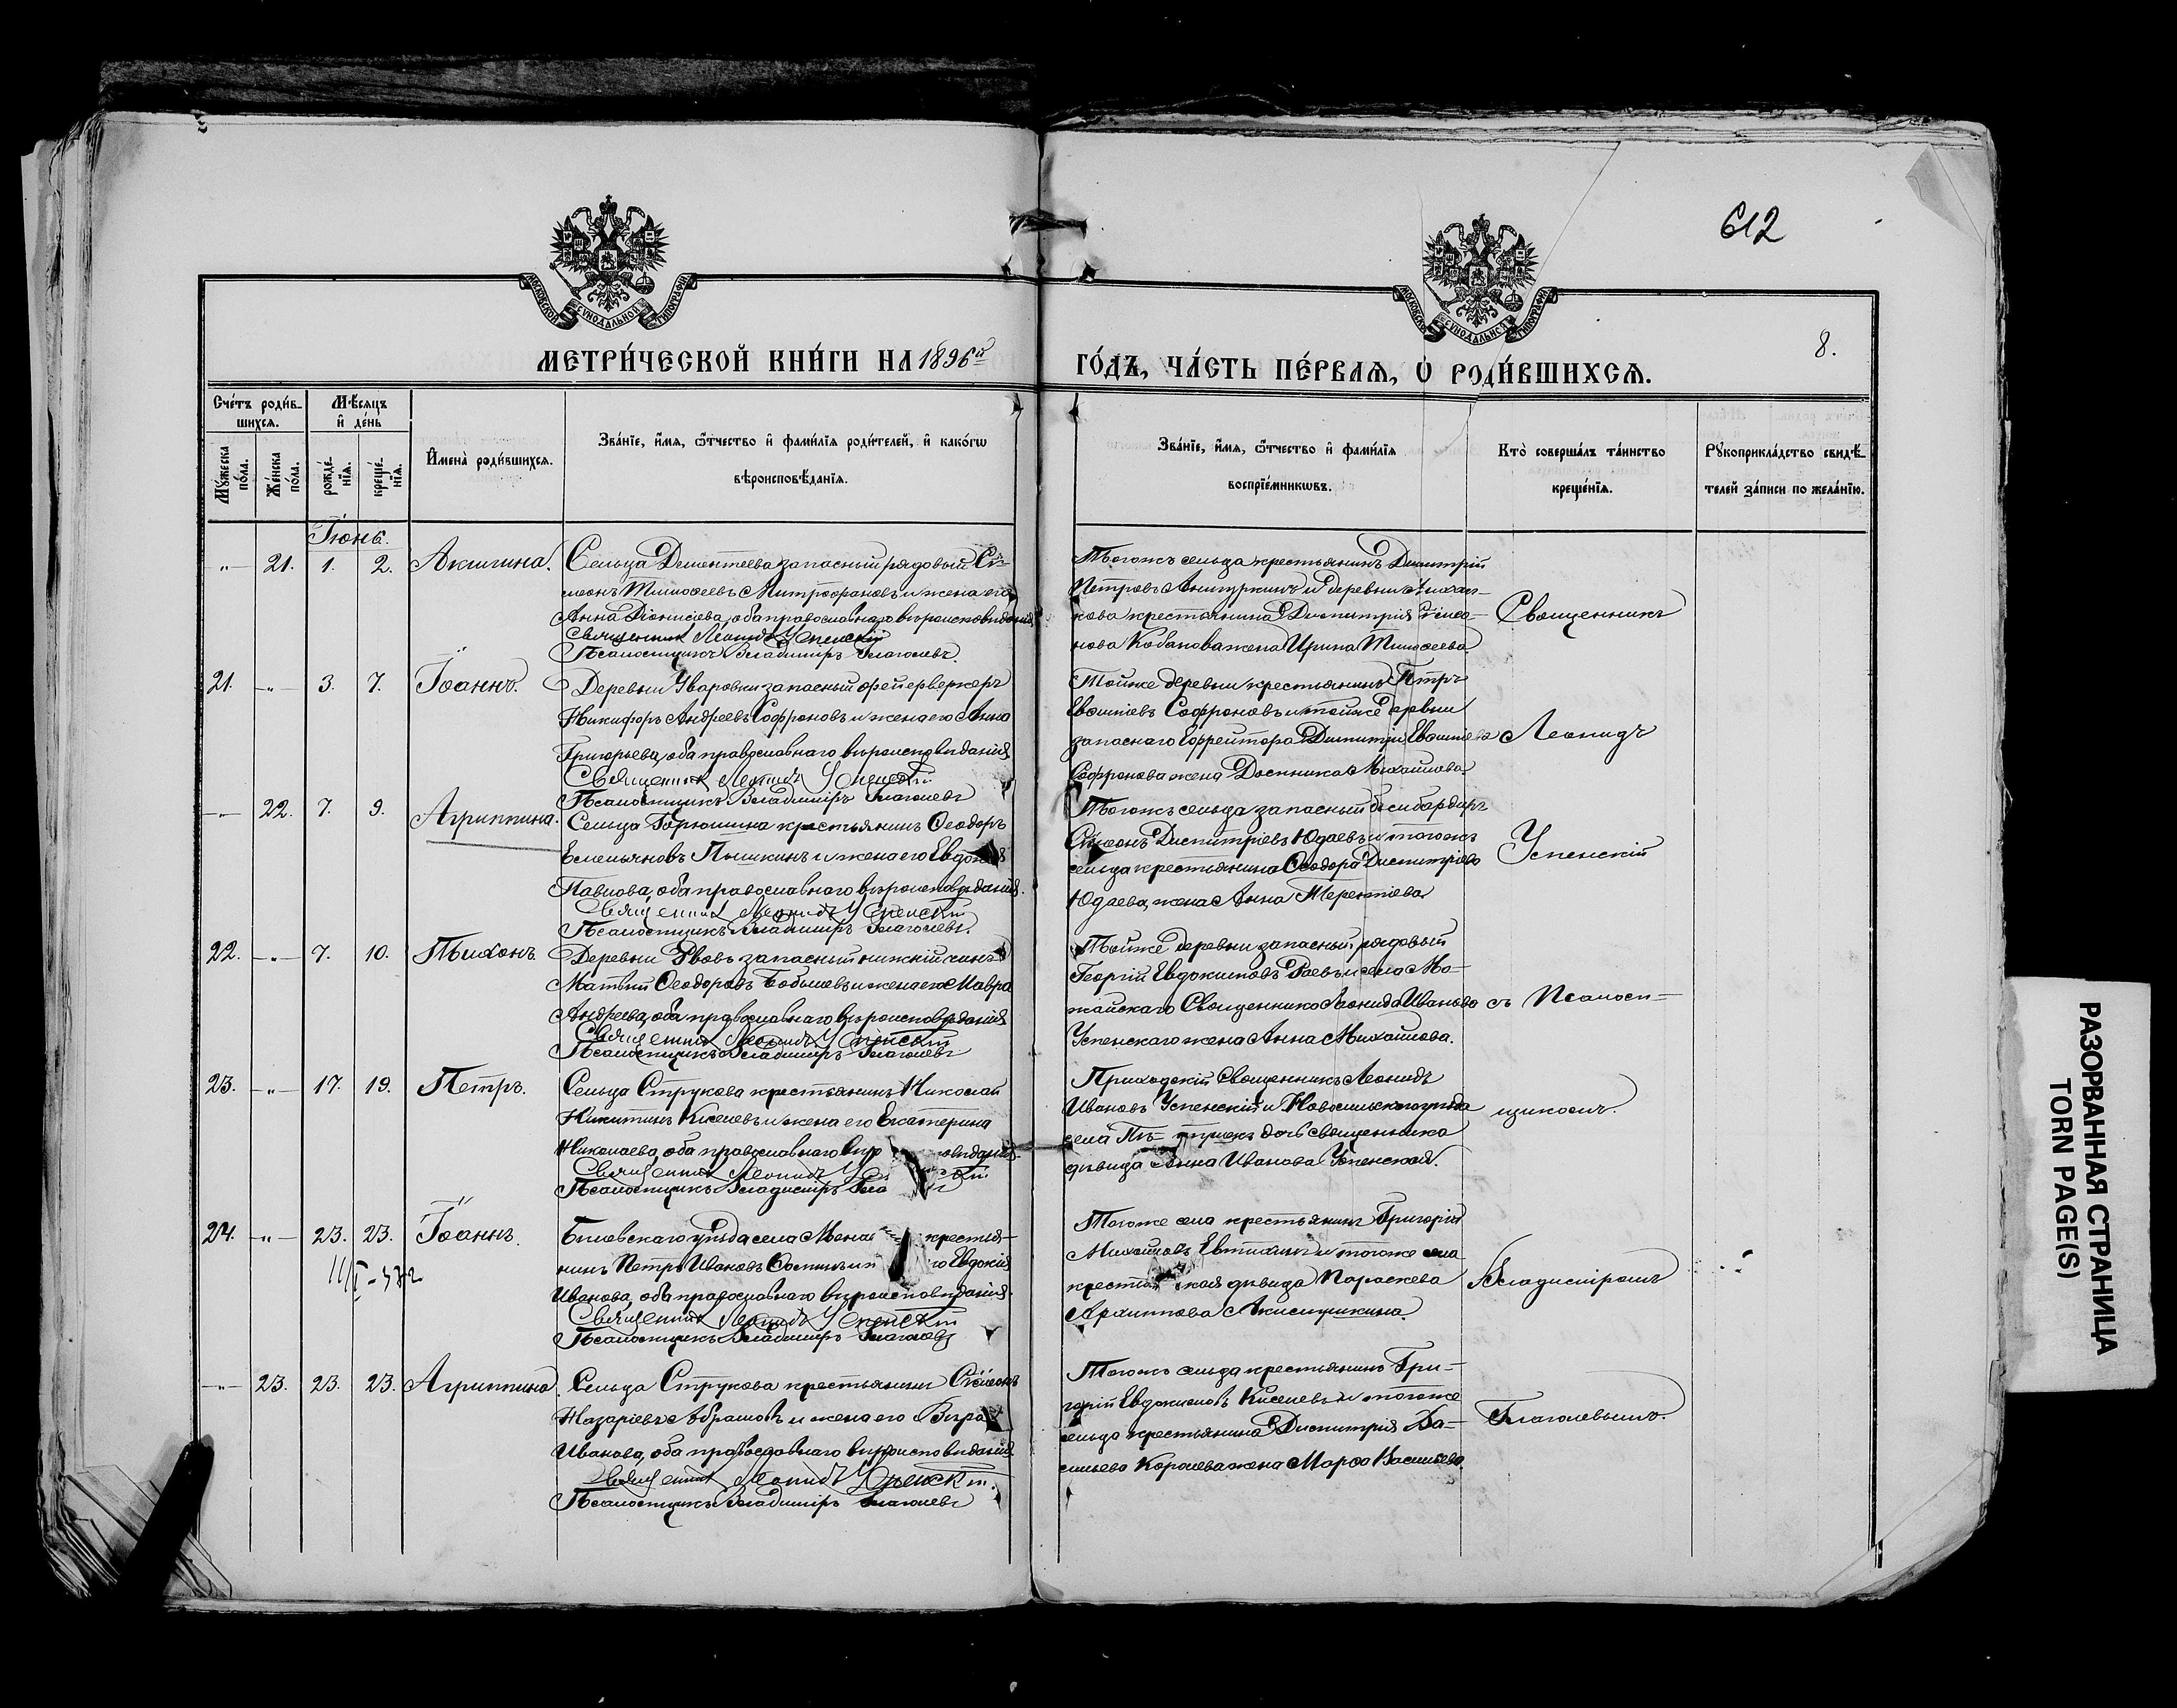 612
МОСКОВСКОЙ СѴНОДАЛЬНОЙ ТИПОГРАФІИ
МОСКОВСКОЙ СѴНОДАЛЬНОЙ ТИПОГРАФІИ
8.
МЕТРИ́ЧЕСКОЙ КНИ́ГИ НА 1896й ГО́ДЪ, ЧА́СТЬ ПЕ́РВАЯ, Ѡ РОДИ́ВШИХСЯ.
Сче́тъ роди́в-
шихся.
Мѣ́сяцъ
и҆ де́нь
Му́жеска по́ла.
Же́нска по́ла.
рожде́-
нія.
креще́-
нія.
И҆мена̀ роди́вшихся.
Зва́ніе, и҆́мя, ѻ҆́тчество и҆ фами́лія роди́телей, и҆ како́гѡ
вѣроисповѣ́данія.
Зва́ніе, и҆́мя, ѻ҆́тчество и҆ фами́лія
воспріе́мникѡвъ.
Кто̀ соверша́лъ та́инство
креще́нія.
Рꙋкоприкла́дство свидѣ́-
телей за́писи по жела́нію.
Іюнь.
21. 1. 2. Акилина.
Сельца Дементеева запасный рядовый Си-
меонъ Тимофеевъ Митрофановъ и жена его
Анна Діонисіева, оба православнаго вѣроисповѣданія
Священникъ Леонидъ Успенскій
Псаломщикъ Владиміръ Глаголевъ.
Тогожъ сельца крестьянинъ Димитрій
Петровъ и деревни
кова крестьянина Димитрія Симео-
нова Кобанова жена Ирина Тимофеева.
Священникъ
21. 3. 7. Іоаннъ.
Деревни Уваровки запасный фейерверкеръ
Никифоръ Андреевъ Софроновъ и жена его Анна
Григорьева, оба православнаго вѣроисповѣданія
Священникъ Леонидъ Успенскій
Псаломщикъ Владиміръ Глаголевъ
Тойже деревни крестьянинъ Петръ
Софроновъ и тойже деревни
запаснаго Ефрейтора Димитрія
Софронова жена Домника Михайлова.
Леонидъ
22. 7. 9. Агриппина.
Сельца Горюшина крестьянинъ Ѳеодоръ
Емельяновъ Пышкинъ и жена его Евдокія
Павлова, оба православнаго вѣроисповѣданія.
Священникъ Леонидъ Успенскій
Псаломщикъ Владиміръ Глаголевъ.
Тогожъ сельца запасный бомбардиръ
Симеонъ Димитріевъ Юдаевъ и тогожъ
сельца крестьянина Ѳеодора Димитріева
Юдаева, жена Анна Терентіева
Успенскій
22. 7. 10. Тихонъ.
Деревни Рвовъ запасный нижній чинъ
Матвій Ѳеодоровъ Бобылевъ и жена его Мавра
Андреева, оба православнаго вѣроисповѣданія
Священникъ Леонидъ Успенскій
Псаломщикъ Владиміръ Глаголевъ
Тойже деревни запасный рядовый
Георгій Евдокимовъ Раевъ и села Мо-
жайскаго Священника Леонида Иванова
Успенскаго жена Анна Михайлова.
съ Псалом-
23. 17. 19. Петръ.
Сельца Струкова крестьянинъ Николай
Никитинъ Киселевъ и жена его Екатерина
Николаева, оба православнаго вѣро овѣданія
Священникъ Леонидъ
Псаломщикъ Владиміръ Гла
Приходскій Священникъ Леонидъ
Ивановъ Успенскій и Новосильскаго уѣзда
села дочь священника
дѣвица Анна Иванова Успенская.
щикомъ.
24. 23. 23. Іоаннъ.
Бѣлевскаго уѣзда села крестья-
нинъ Петръ Ивановъ го Евдокія
Иванова, оба православнаго вѣроисповѣданія.
Священникъ Леонидъ Успенскій
Псаломщикъ Владиміръ Глаголевъ
Тогоже села крестьянинъ Григорій
Михайловъ Евтихинъ и тогоже села
кресть ская дѣвица Параскева
Архиппова Акимушкина.
Владиміромъ
23. 23. 23. Агриппина.
Сельца Струкова крестьянинъ Симеонъ
Назаріевъ Абрамовъ и жена его Вѣра
Иванова, оба православнаго вѣроисповѣданія
Священникъ Леонидъ Успенскій.
Псаломщикъ Владиміръ Глаголевъ
Тогожъ сельца крестьянинъ Гри-
горій Евдокимовъ Киселевъ и тогоже
сельца крестьянина Димитрія Ва-
сильева Королева жена Марѳа Васильева.
Глаголевымъ.
РАЗОРВАННАЯ СТРАНИЦА
TORN PAGE(S)